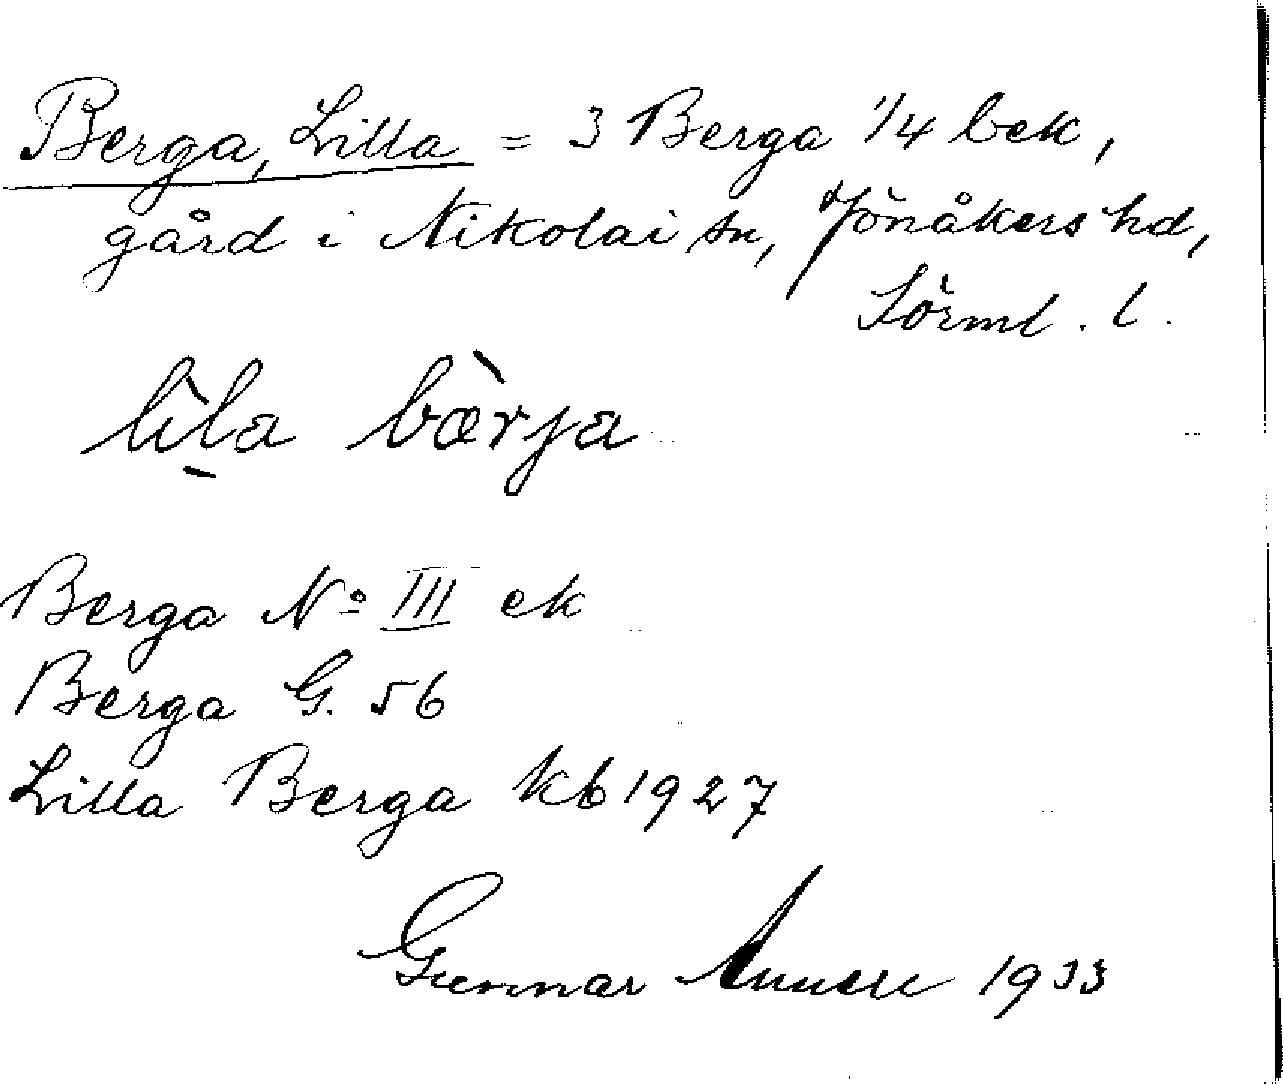 Berga, Lilla = 3 Berga 1/4 bek,
gård i Nikolai sn, Jönåkers hd,
Sörml. l.
lìla bæ̀rja
Berga No III ek
Berga G. 56
Lilla Berga kb 1927
Gunnar 1933